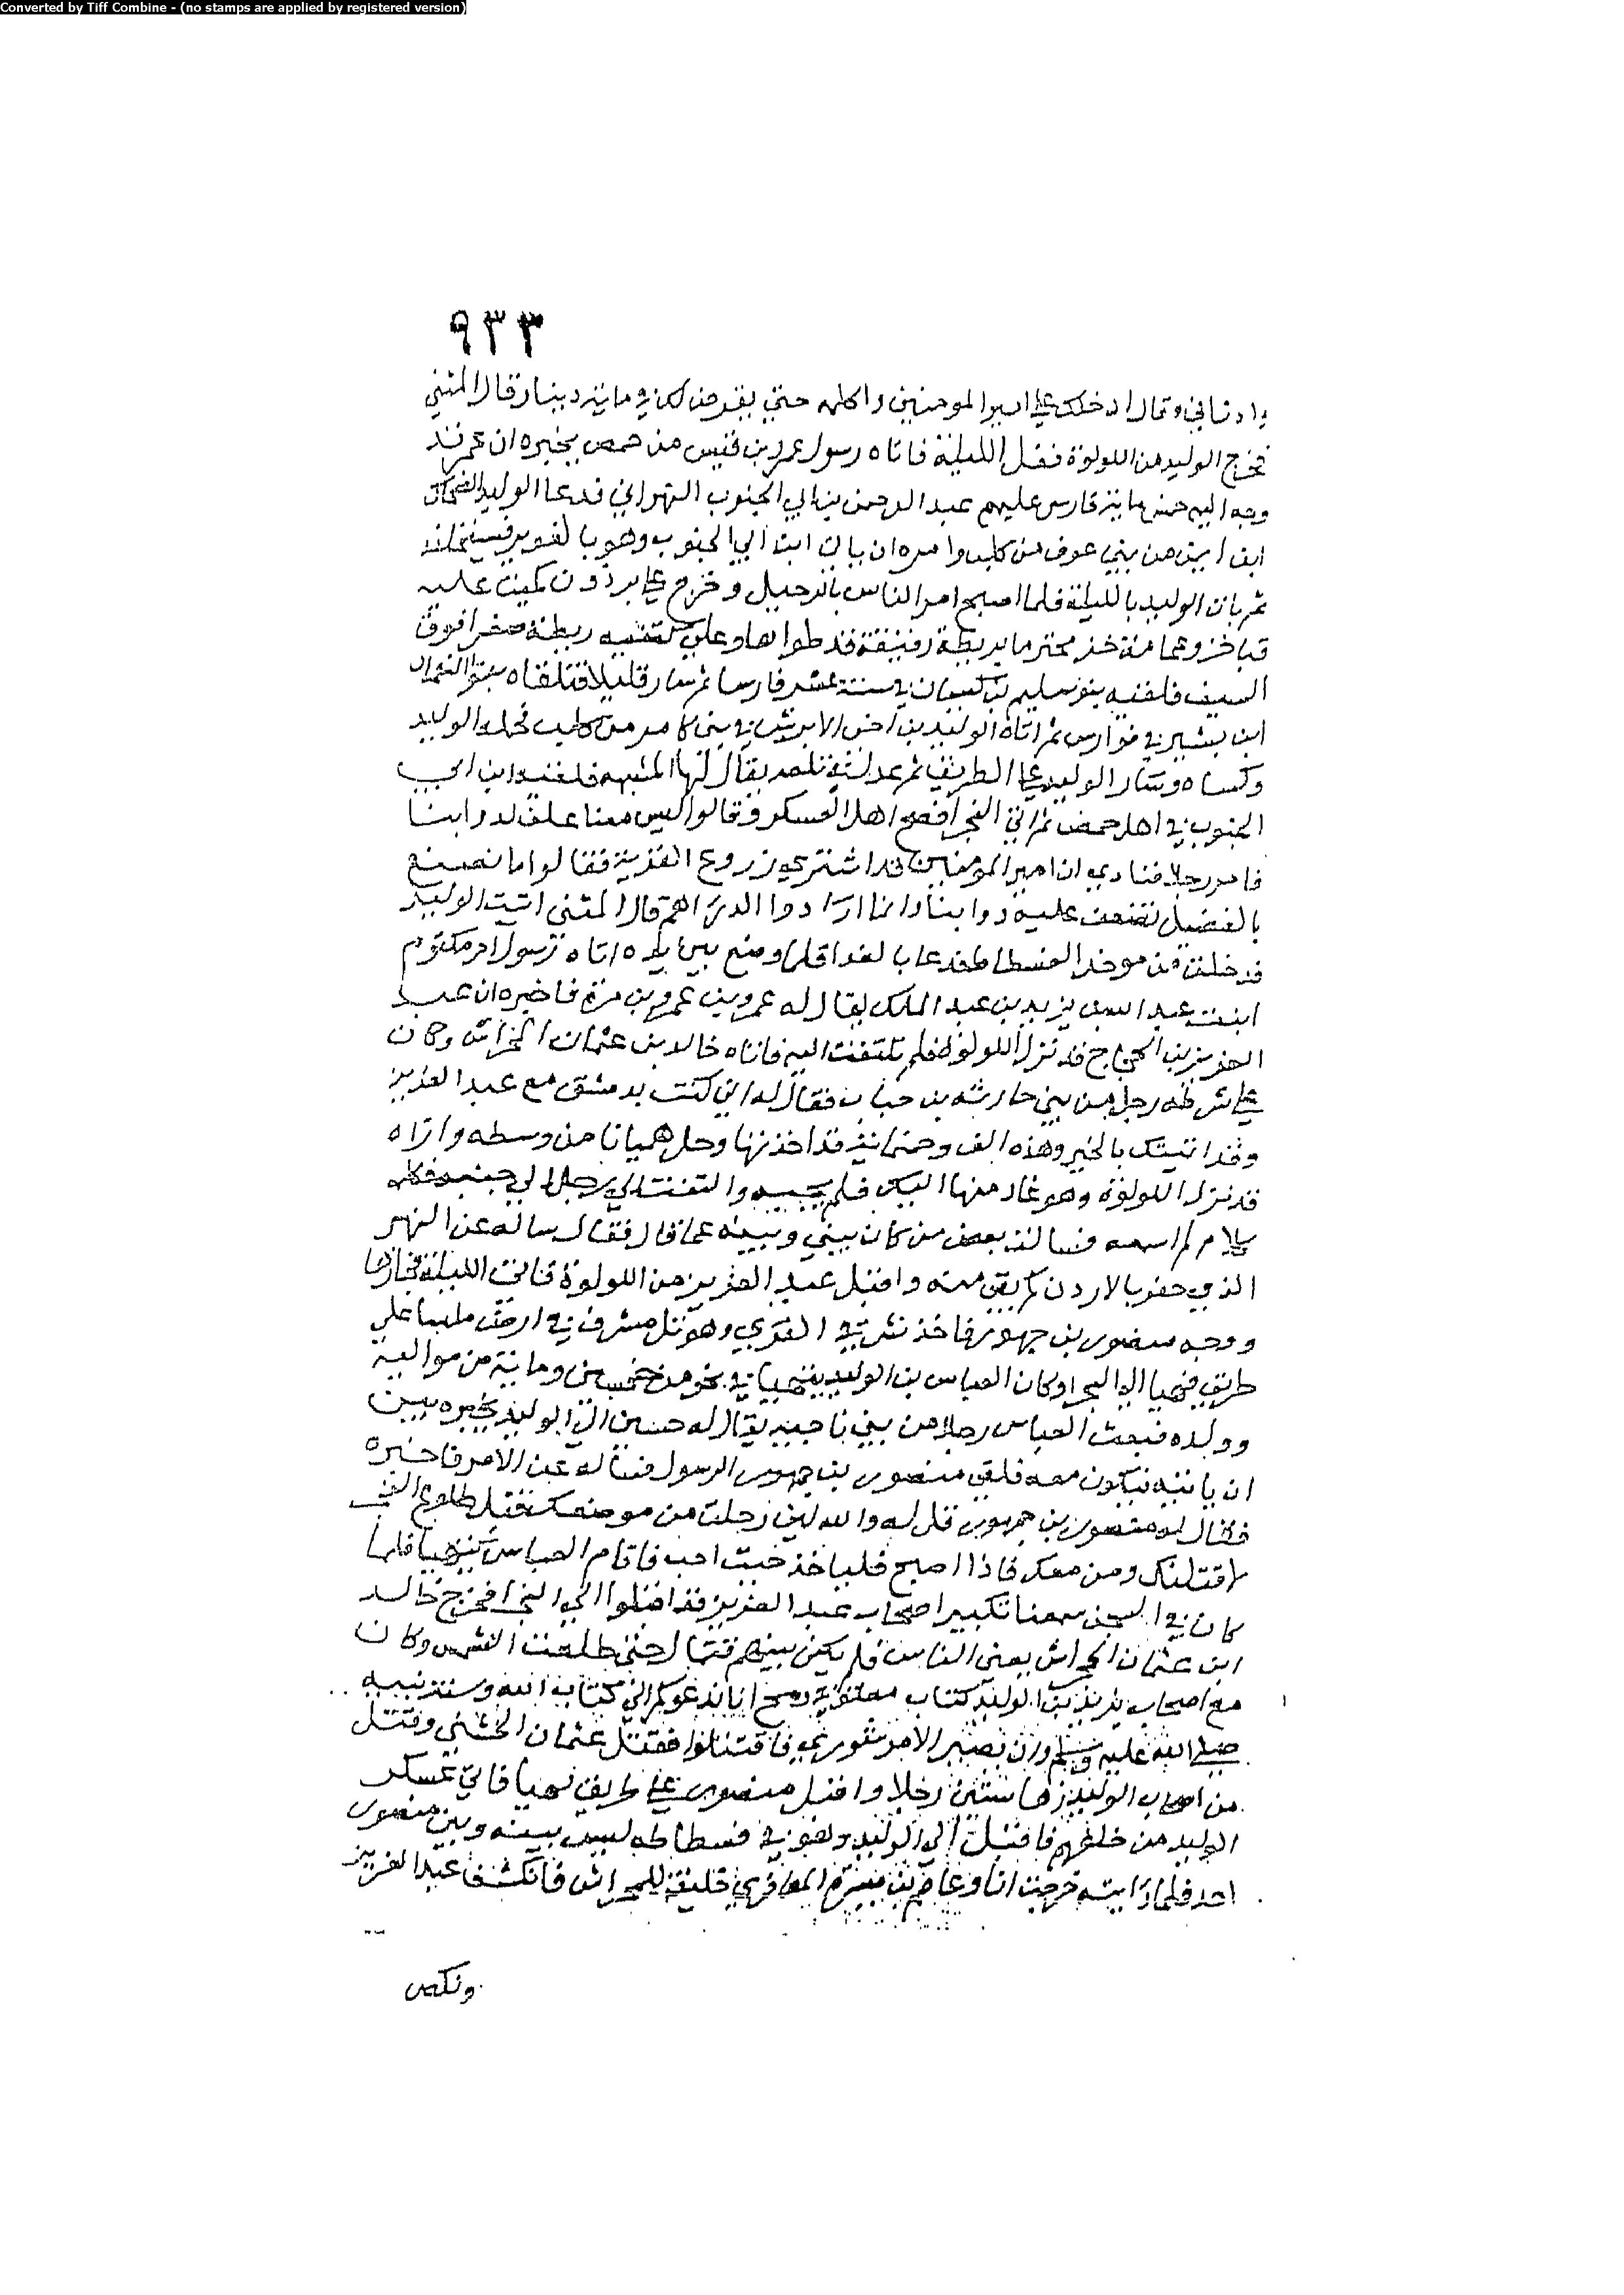 Converted by Tiff Combine - (no stamps are applied by registered version)
٩٣٣
وقال ادخلك على امير المومنين واكلمه حتى يفرض لك في ماية دينار قال المثني
فخرج الوليد من اللولوة فنزل المليكة فاتاه رسول عمرو بن قيس من حمص يخبره ان عمرا قد
وجه اليه خمس ماية فارس عليهم عبد الرحمن بن ابي الجنوب البهراني فدعا الوليد الضحاك
ابن ايمن من بني عوف من كلب وامره ان ياتي ابن ابي الجنوب وهو بالغوير فيستعجله
ثم ياتي الوليد بالمليكة فلما اصبح امر الناس بالرحيل وخرج على برذون كميت عليه
قبا خز وعمامة خز محتزما بريطة رقيقة قد طواها وعلى كتفيه ريطة صفرا فوق
السيف فلقيه بنو سليم بن كيسان في ستة عشر فارسا ثم سار قليلا فتلقاه بنو النعمان
ابن بشير في فوارس ثم اتاه الوليد بن اخي الابرش في بني عامر من كلب فحمله الوليد
وكساه وسار الوليد على الطريق ثم عدل في تلعة يقال لها المشبهة فلقيه ابن ابي
الجنوب في اهل حمص ثم اتى البخرا فضج اهل العسكر وقالوا ليس معنا علف لدوابنا
فامر رجلا فنادى ان امير المومنين قد اشترى زروع القرية فقالوا ما نصنع
بالقصيل تضعف عليه دوابنا وانما ارادوا الدراهم قال المثنى اتيت الوليد
فدخلت من موخر الفسطاط فدعا بالغدا فلما وضع بين يديه اتاه رسول ام كلثوم
ابنت عبد الله بن يزيد بن عبد الملك يقال له عمرو بن مرة فاخبره ان عبد
العزيز بن الحجاج قد نزل اللولوة فلم يلتفت اليه فاتاه خالد بن عثمان المخراش وكان
على شرطه رجل من بني حارثة بن جناب فقال له اني كنت بدمشق مع عبد العزيز
وقد اتيتك بالخبر وهذه الف وخمسماية قد اخذتها وحل هميانا من وسطه واراه
قد نزل اللولوة وهو غاد منها اليك فلم يجبه والتفت الى رجل الى جنبه وكلمه
بكلام لم اسمعه فسالت بعض من كان بيني وبينه عما قال فقال ساله عن النهر
الذي حفر بالاردن كم بقي منه واقبل عبد العزيز من اللولوة فاتى المليكة فحازها
ووجه منصور بن جمهور فاخذ شرقي القرى وهو تل مشرف في ارض ملسا على
طريق نهيا الى البخرا وكان العباس بن الوليد بنهيا في نحو من خمسين وماية من مواليه
وولده فبعث العباس رجلا من بني ناجية يقال له حبيش الى الوليد يخيره بين
ان ياتيه فيكون معه فلقي منصور بن جمهور الرسول فساله عن الامر فاخبره
فقال له منصور بن جمهور قل له والله لين رحلت من موضعك قبل طلوع الفجر
لاقتلنك ومن معك فاذا اصبح فلياخذ حيث احب فاقام العباس بنهيا فلما
كان في السحر سمعنا تكبير اصحاب عبد العزيز قد اقبلوا الى البخرا فخرج خالد
ابن عثمان المخراش يعبي الناس فلم يكن بينهم قتال حتى طلعت الشمس وكان
مع اصحاب يزيد بن الوليد كتاب معلق في رمح انا ندعوكم الى كتاب الله وسنة نبيه
صلى الله عليه وسلم وان يصير الامر شورى فاقتتلوا فقتل عثمان الخشني وقتل
من اصحاب الوليد زها ستين رجلا واقبل منصور على طريق نهيا فاتى عسكر
الوليد من خلفهم فاقبل الى الوليد وهو في فسطاطه ليس بينه وبين منصور
احد فلما رايته خرجت انا وعاصم بن هبيرة المعافري خليفة المخراش فانكشف عبد العزيز
ونكص